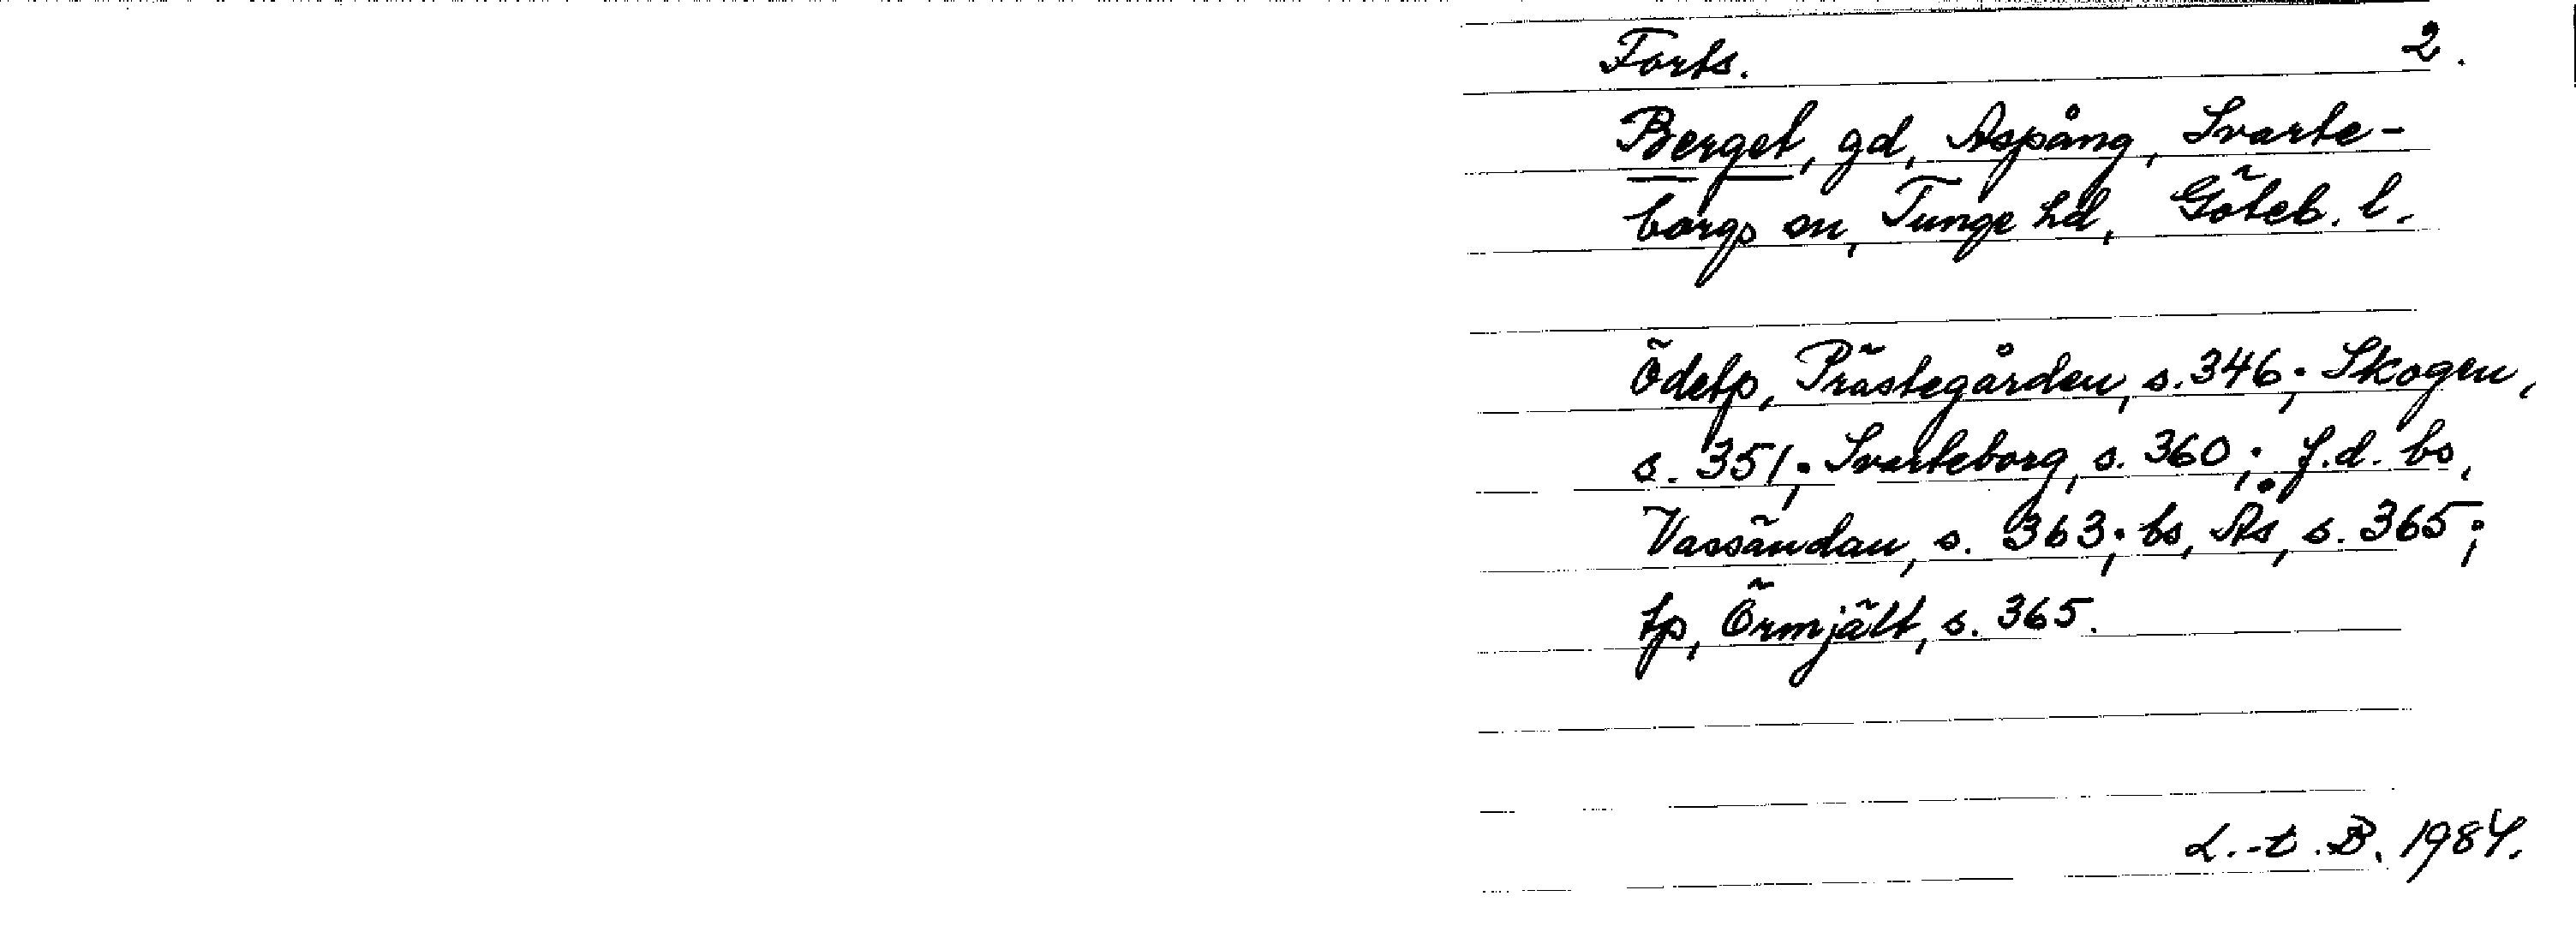 Forts. 2.
Berget, gd, Aspång, Svarte-
borgs sn, Tunge hd, Göteb. l.
Ödetp, Prästegården, s. 346; Skogen,
s. 351; Svarteborg, s. 360; f.d. bs,
Vassändan, s. 363; bs, Ås, s. 365;
tp, Örmjält, s. 365.
L.-t. B. 1984.